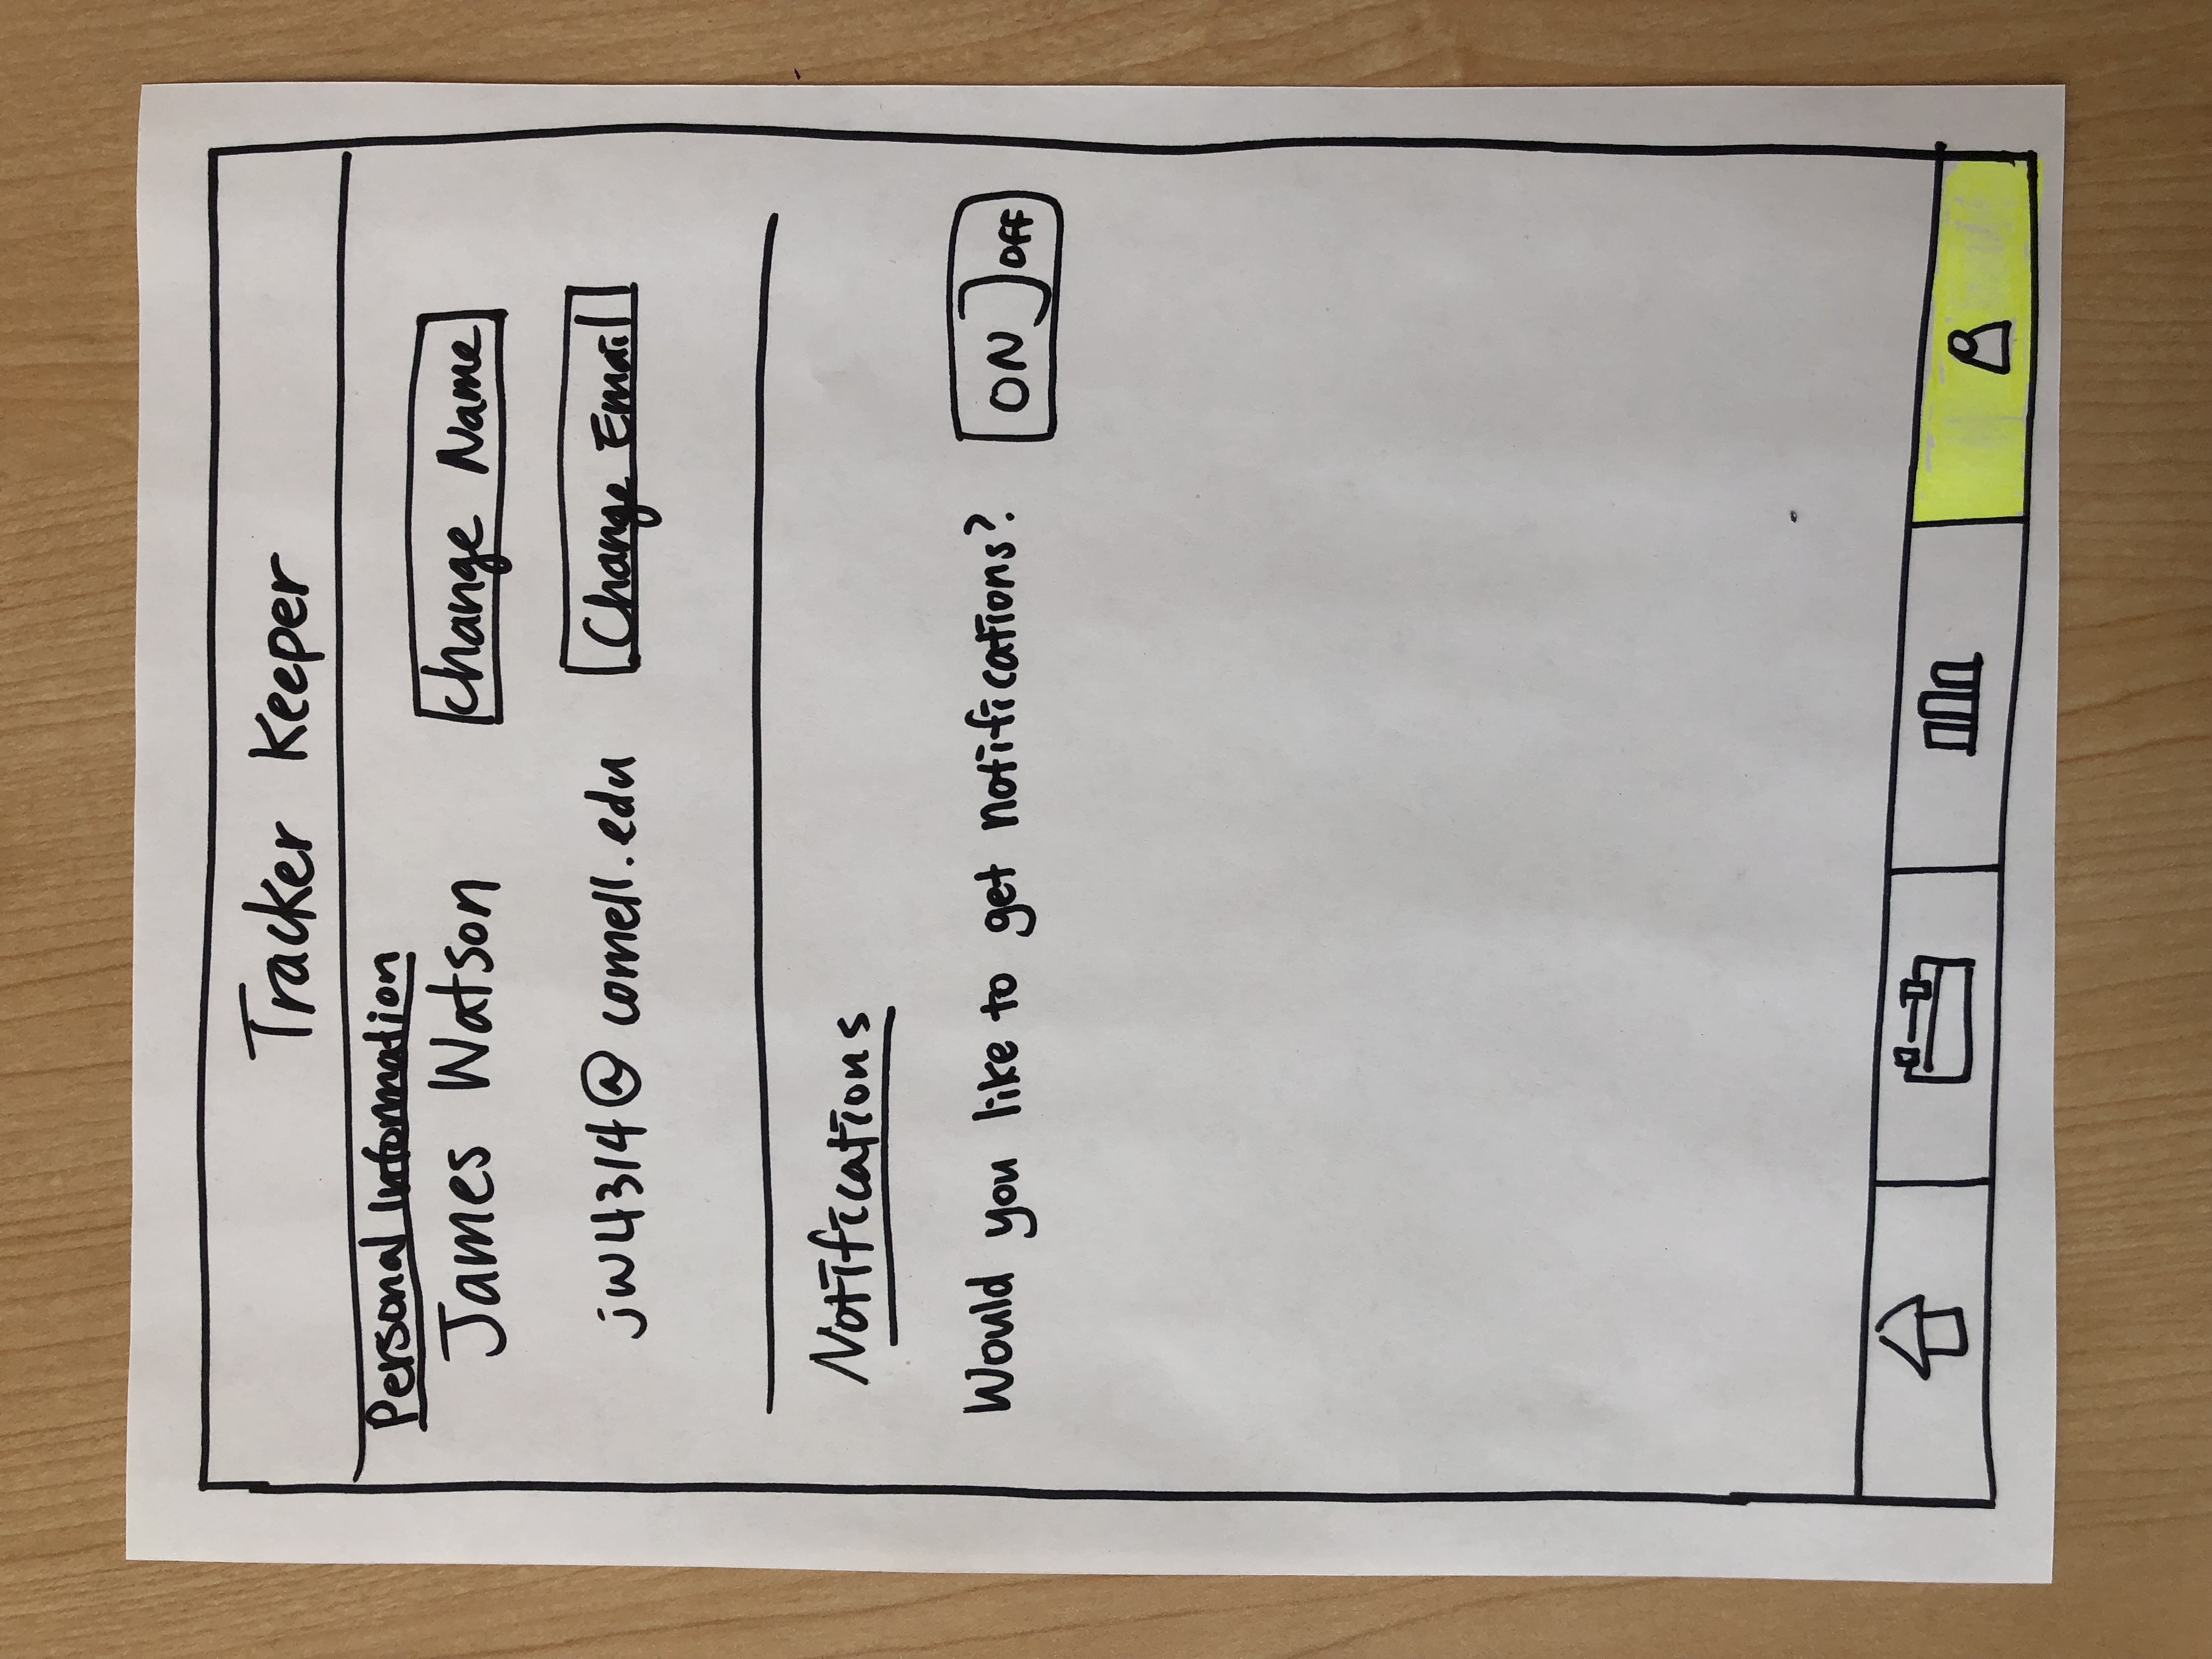 Tracker Keeper
Personal Information
James Watson
Change Name
jw4314@cornell.edu
Change Email
Notifications
Would you like to get notifications?
ON OFF